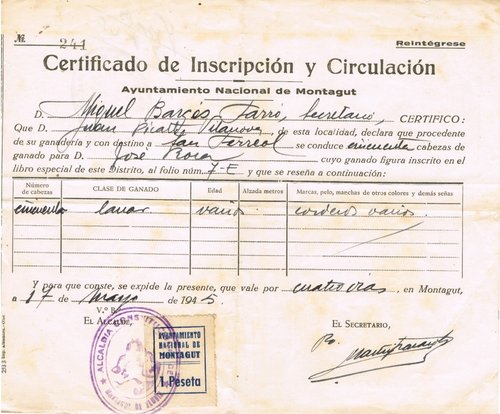 № 241
Reintégrese
Certificado de Inscripción y Circulación
Ayuntamiento Nacional de Montagut
D. Miguel Barcés Farró, Secretario, CERTIFICO:
Que D. Juan Vilanova, de esta localidad, declara que procedente
de su ganadería y con destino a San Ferreol se conduce cincuenta cabezas
de ganado para D. José Roca cuyo ganado figura inscrito en el
libro especial de este Distrito, al folio núm. 7-E y que se reseña a continuación:
Número de cabezas CLASE DE GANADO Edad Alzada metros Marcas, pelo, manchas de otros colores y demás señas
cincuenta lanar varios corderos varios.
Y para que conste, se expide la presente, que vale por cuatro días, en Montagut,
a 17 de Mayo de 1945.
V.º B.º
EL ALCALDE,
EL SECRETARIO,
P.o.
ALCALDÍA
AYUNTAMIENTO
NACIONAL DE
MONTAGUT
1 Peseta